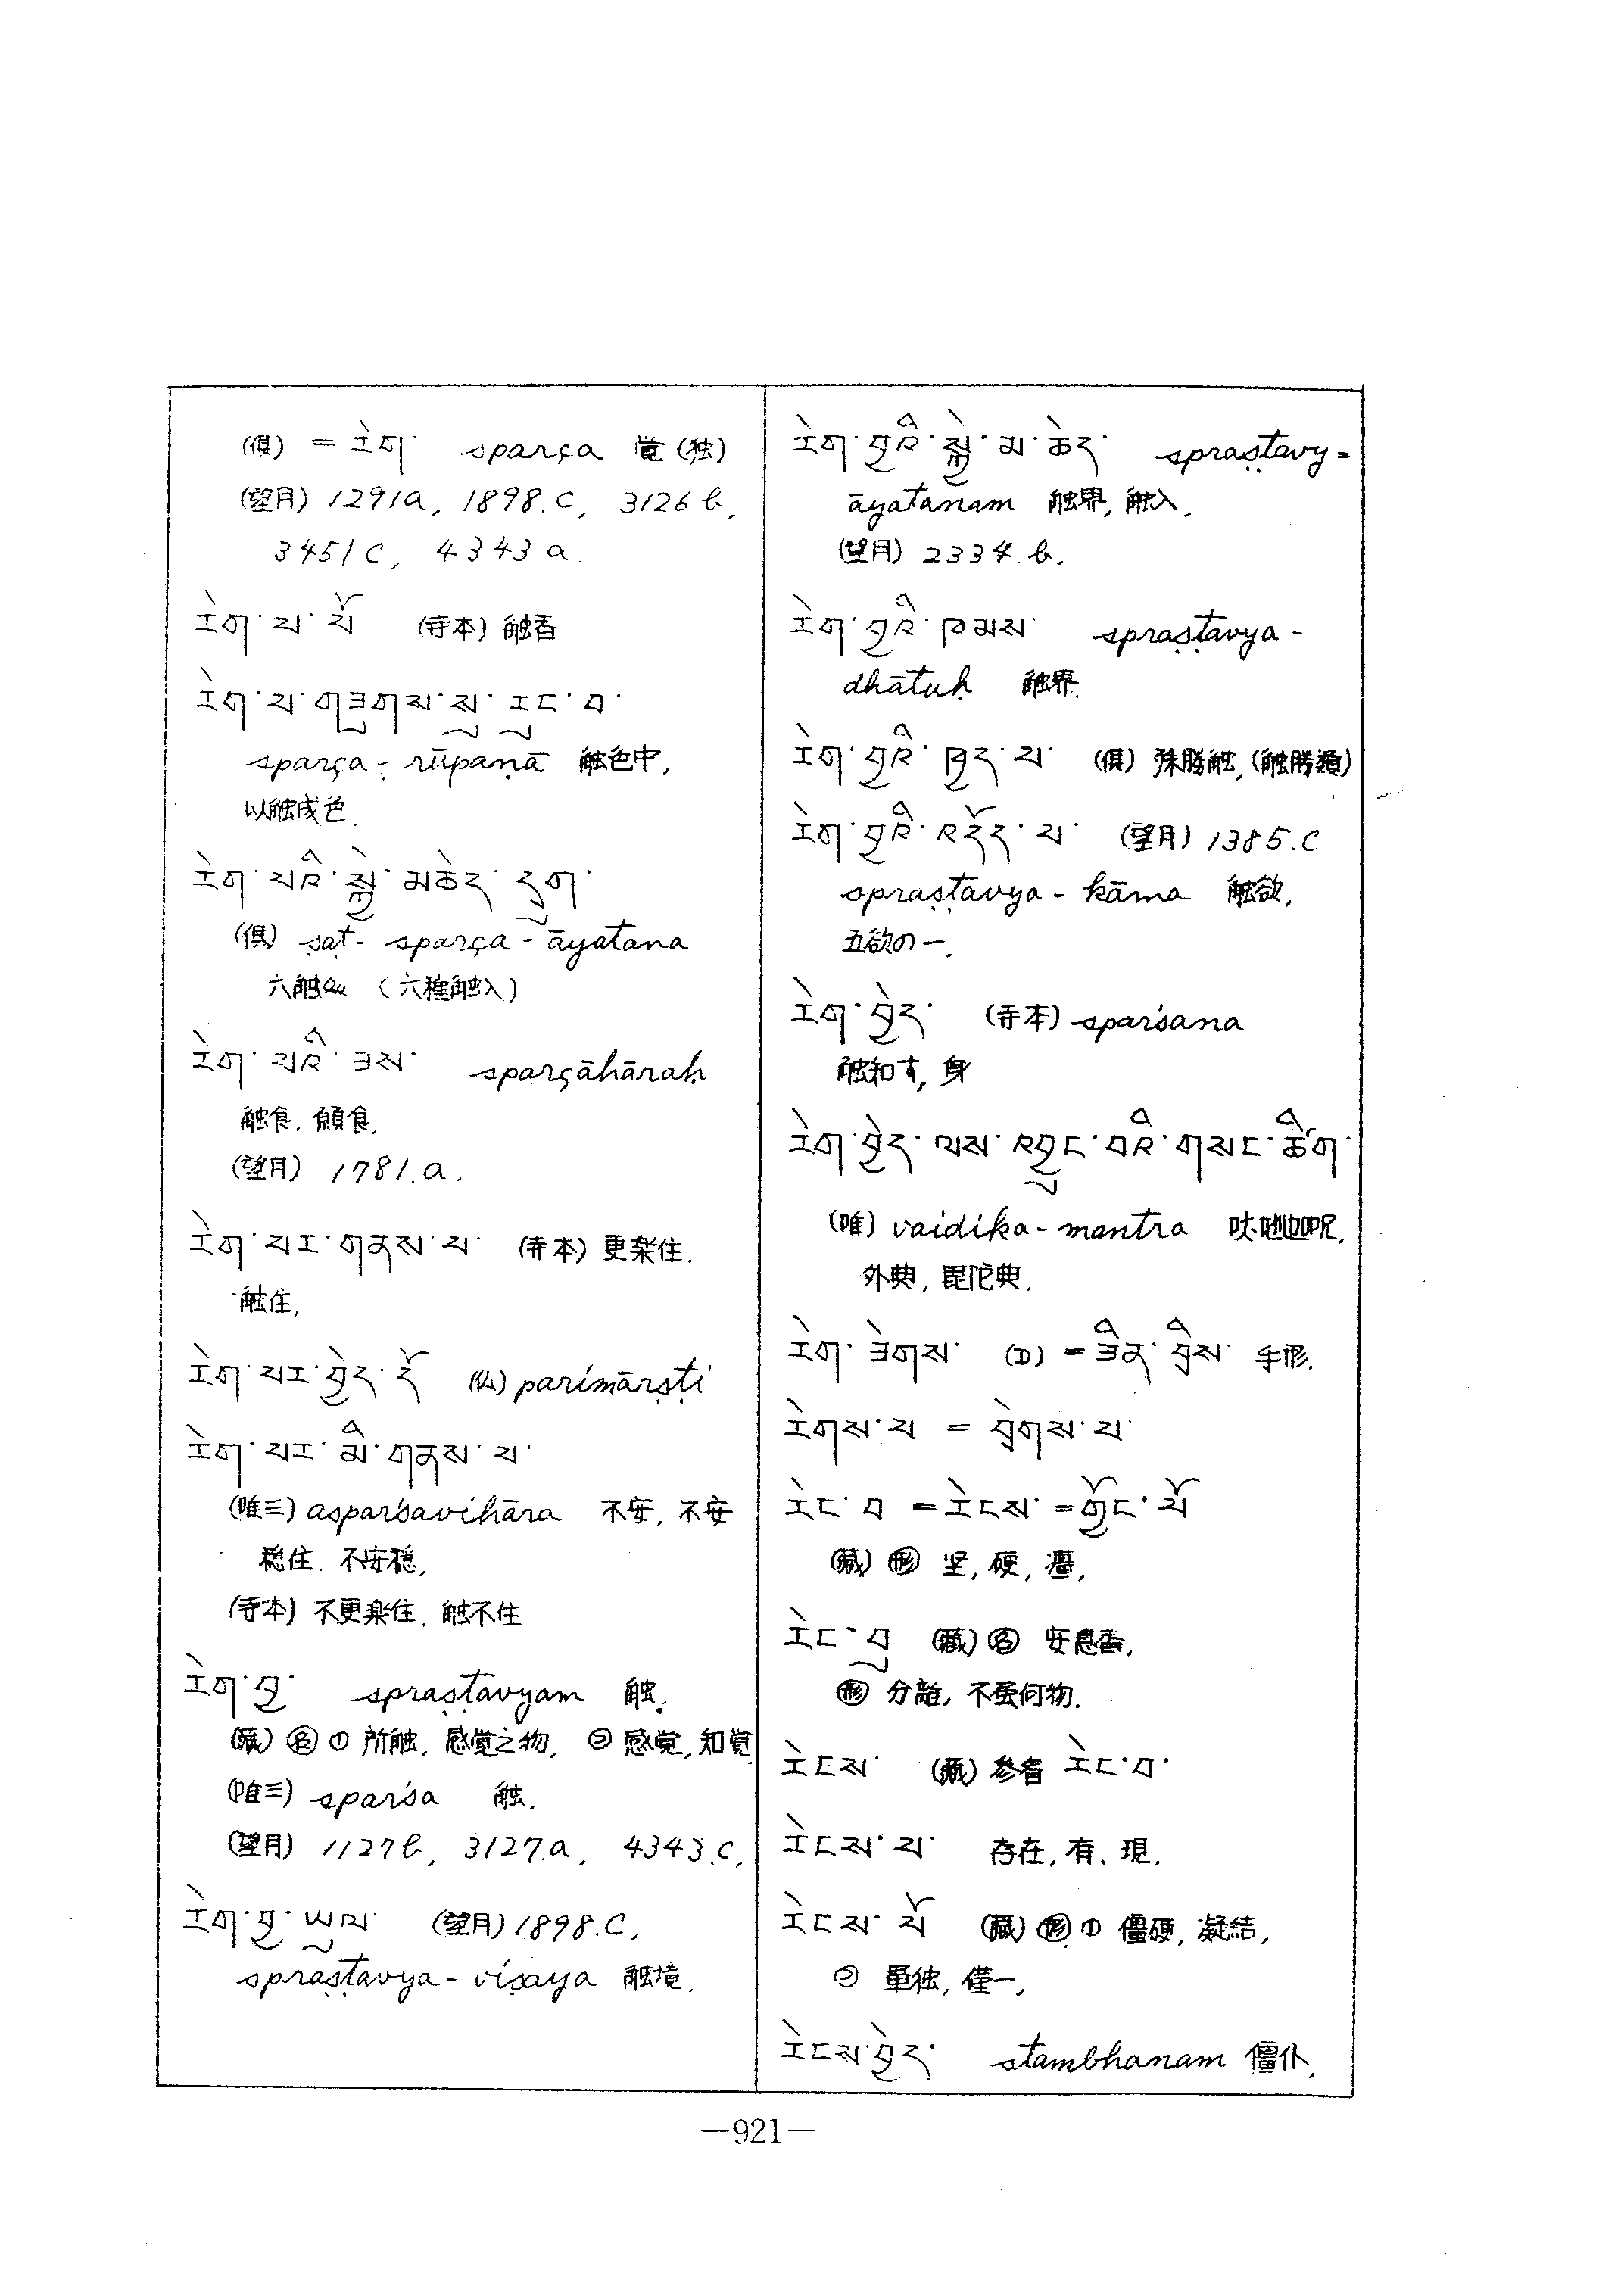 (倶) = རེག་ sparça 覚 (独)
(望月) 1291a, 1898.c, 3126b,
3451c, 4343a.
རེག་པ་པོ (寺本) 触香
རེག་པ་གཟུགས་སུ་རུང་བ་
sparça-rūpaṇā 触色中,
以触成色.
རེག་པའི་སྐྱེ་མཆེད་དྲུག་
(倶) ṣaṭ-sparça-āyatana
六触処 (六種触入)
རེག་པའི་ཟས་ sparçāhāraḥ
触食.
(望月) 1781.a.
རེག་པར་གནས་པ་ (寺本) 更楽住.
触住,
རེག་པར་བྱེད་དོ parimārṣṭi
རེག་པར་མི་གནས་པ་
(唯三) asparśavihāra 不安, 不安
穏住. 不安穏,
(寺本) 不更楽住. 触不住
རེག་བྱ་ spraṣṭavyam 触.
(蔵) 名 ① 所触. 感覚之物, ② 感覚, 知覚
(唯三) sparśa 触.
(望月) 1127b, 3127.a, 4343.c,
རེག་བྱ་ཡུལ་ (望月) 1898.C,
spraṣṭavya-viṣaya 触境.
རེག་བྱའི་སྐྱེ་མ་ཆེད་ spraṣṭavy=
āyatanam 触界, 触入.
(望月) 2334.b.
རེག་བྱའི་ཁམས་ spraṣṭavya-
dhātuḥ 触界.
རེག་བྱའི་ཁྱད་པ་ (倶) 殊勝触, (触勝類)
རེག་བྱའི་འདོད་པ་ (望月) 1385.C
spraṣṭavya-kāma 触欲,
五欲の一.
རེག་བྱེད་ (寺本) sparśana
触知す, 身
རེག་བྱེད་ལས་འབྱུང་བའི་གསང་ཚིག་
(唯) vaidika-mantra 吠咃迦呪,
外典, 毘陀典.
རེག་ཟེགས་ (D) = ཟིན་བྲིས་ 手形.
རེགས་པ = བྲེགས་པ་
རེང་བ = རེངས་ = གྱོང་པོ
(蔵) 形 坚, 硬, 殭,
རེང་བུ (蔵) 名 安息香,
形 分離, 不蚕何物.
རེངས་ (蔵) 参看 རེང་བ་
རེངས་པ་ 存在, 有, 現.
རེངས་པོ (蔵) 形 ① 僵硬, 凝結,
② 單独, 僅一,
རེངས་བྱེད་ stambhanam 僵仆.
—921—